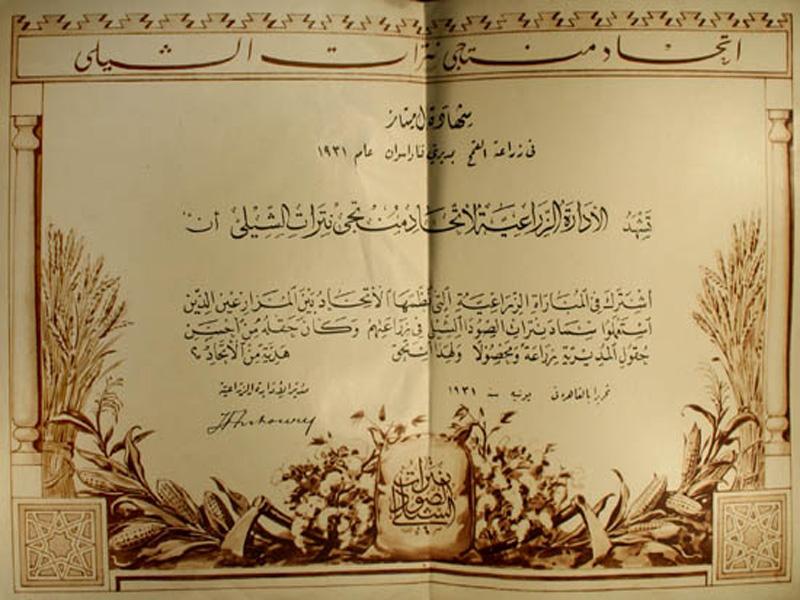 اتحاد منتجى نترات الشيلى
شهادة امتياز
فى زراعة القمح بمديرية عام ١٩٣١
تشهد الإدارة الزراعية لاتحاد منتجى نترات الشيلى أن
اشترك فى المباراة الزراعية التى نظمها الاتحاد بين المزارعين الذين
استعملوا سماد نترات الصودا الشيلى فى زراعتهم وكان حقله من أحسن
حقول المديرية زراعة ومحصولا ولهذا استحق هدية من الاتحاد
تحريرا بالقاهرة فى يونيه سنة ١٩٣١
مدير الإدارة الزراعية
نترات
الصودا
الشيلى